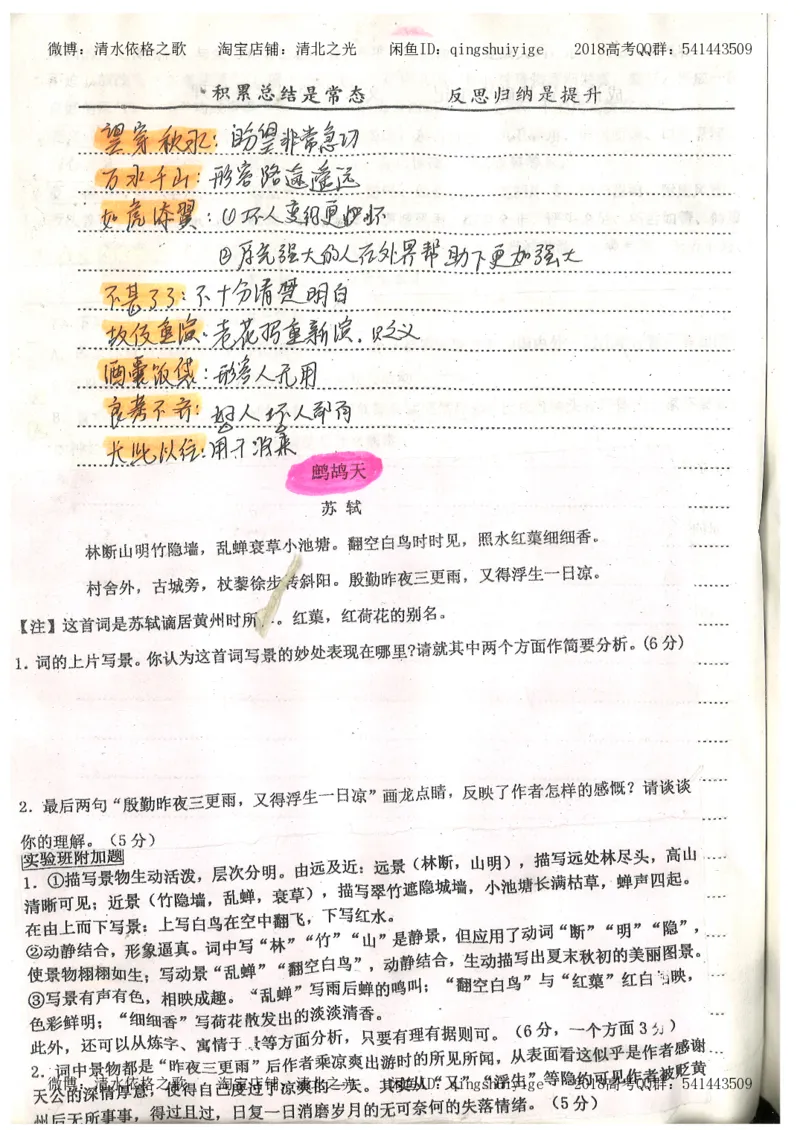 微博：清水依格之歌 淘宝店铺：清北之光 闲鱼ID：qingshuiyige 2018高考QQ群：541443509
积累总结是常态 反思归纳是提升
望穿秋水：盼望非常急切
万水千山：形容路途遥远
如虎添翼：①坏人变得更加坏
②原先强大的人在外界帮助下更加强大
不甚了了：不十分清楚明白
故伎重演：老花招重新演，贬义
酒囊饭袋：形容人无用
良莠不齐：好人坏人都有
长此以往：用于将来
鹧鸪天
苏 轼
林断山明竹隐墙，乱蝉衰草小池塘。翻空白鸟时时见，照水红蕖细细香。
村舍外，古城旁，杖藜徐步转斜阳。殷勤昨夜三更雨，又得浮生一日凉。
【注】这首词是苏轼谪居黄州时所 。红蕖，红荷花的别名。
1．词的上片写景。你认为这首词写景的妙处表现在哪里？请就其中两个方面作简要分析。(6 分)
2．最后两句“殷勤昨夜三更雨，又得浮生一日凉”画龙点睛，反映了作者怎样的感慨？请谈谈
你的理解。（5 分）
实验班附加题
1．①描写景物生动活泼，层次分明。由远及近：远景（林断，山明），描写远处林尽头，高山
清晰可见；近景（竹隐墙，乱蝉，衰草），描写翠竹遮隐城墙，小池塘长满枯草，蝉声四起。
在由上而下写景：上写白鸟在空中翻飞，下写红水。
②动静结合，形象逼真。词中写“林”“竹”“山”是静景，但应用了动词“断”“明”“隐”，
使景物栩栩如生；写动景“乱蝉”“翻空白鸟”，动静结合，生动描写出夏末秋初的美丽图景。
③写景有声有色，相映成趣。“乱蝉”写雨后蝉的鸣叫；“翻空白鸟”与“红蕖”红白 映，
色彩鲜明；“细细香”写荷花散发出的淡淡清香。
此外，还可以从炼字、寓情于 等方面分析，只要有理有据则可。（6 分，一个方面 3 分）
2．词中景物都是“昨夜三更雨”后作者乘凉爽出游时的所见所闻，从表面看这似乎是作者感谢
天公的深情厚意，使得自己度过了凉爽的一天。其实从“又”“浮生”等隐约可见作者被贬黄
微博：清水依格之歌 淘宝店铺：清北之光 闲鱼ID：qingshuiyige 2018高考QQ群：541443509
州后无所事事，得过且过，日复一日消磨岁月的无可奈何的失落情绪。（5 分）